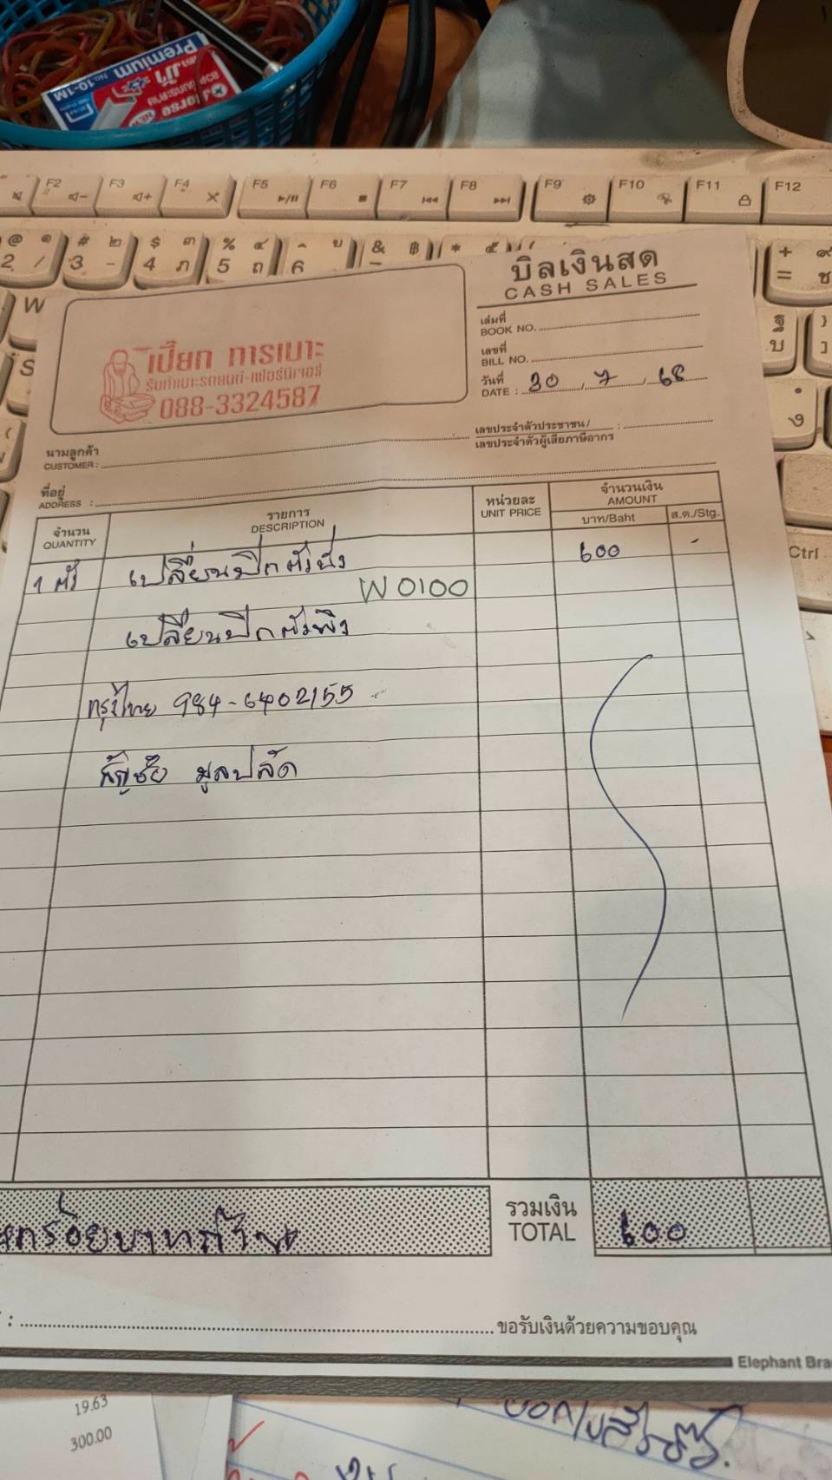 Premium
No.10-1M
Horse
F2 F3 F4 F5 F6 F7 F8 F9 F10 F11 F12
บิลเงินสด
CASH SALES
เล่มที่
BOOK NO.
เลขที่
BILL NO.
วันที่
DATE : 30 , 7 , 68
เปี๊ยก การเบาะ
รับทำเบาะรถยนต์-เฟอร์นิเจอร์
088-3324587
เลขประจำตัวประชาชน/
เลขประจำตัวผู้เสียภาษีอากร :
นามลูกค้า
CUSTOMER :
ที่อยู่
ADDRESS :
จำนวน
QUANTITY
รายการ
DESCRIPTION
หน่วยละ
UNIT PRICE
จำนวนเงิน
AMOUNT
บาท/Baht ส.ต./Stg.
1 ตัว เปลี่ยนปีกตัวนั่ง 600 -
W0100
เปลี่ยนปีกตัวพิง
กรุงไทย 984-6402155
มูลปลัด
หกร้อยบาทถ้วน
รวมเงิน
TOTAL
600
ขอรับเงินด้วยความขอบคุณ
Elephant Bra
19.63
300.00